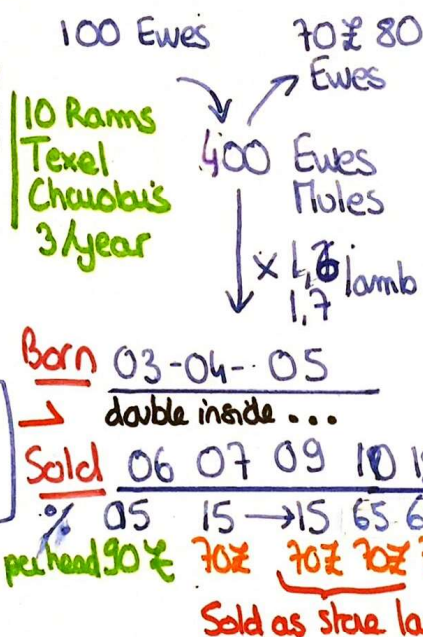 100 Ewes 70£ 80
Ewes
10 Rams
Texel
Charolais
3/year
400 Ewes
Mules
× 1,6 lamb
1,7
Born 03-04-- 05
double inside ...
Sold 06 07 09 10 1
% 05 15 → 15 65 6
per head 90£ 70£ 70£ 70£
Sold as store la